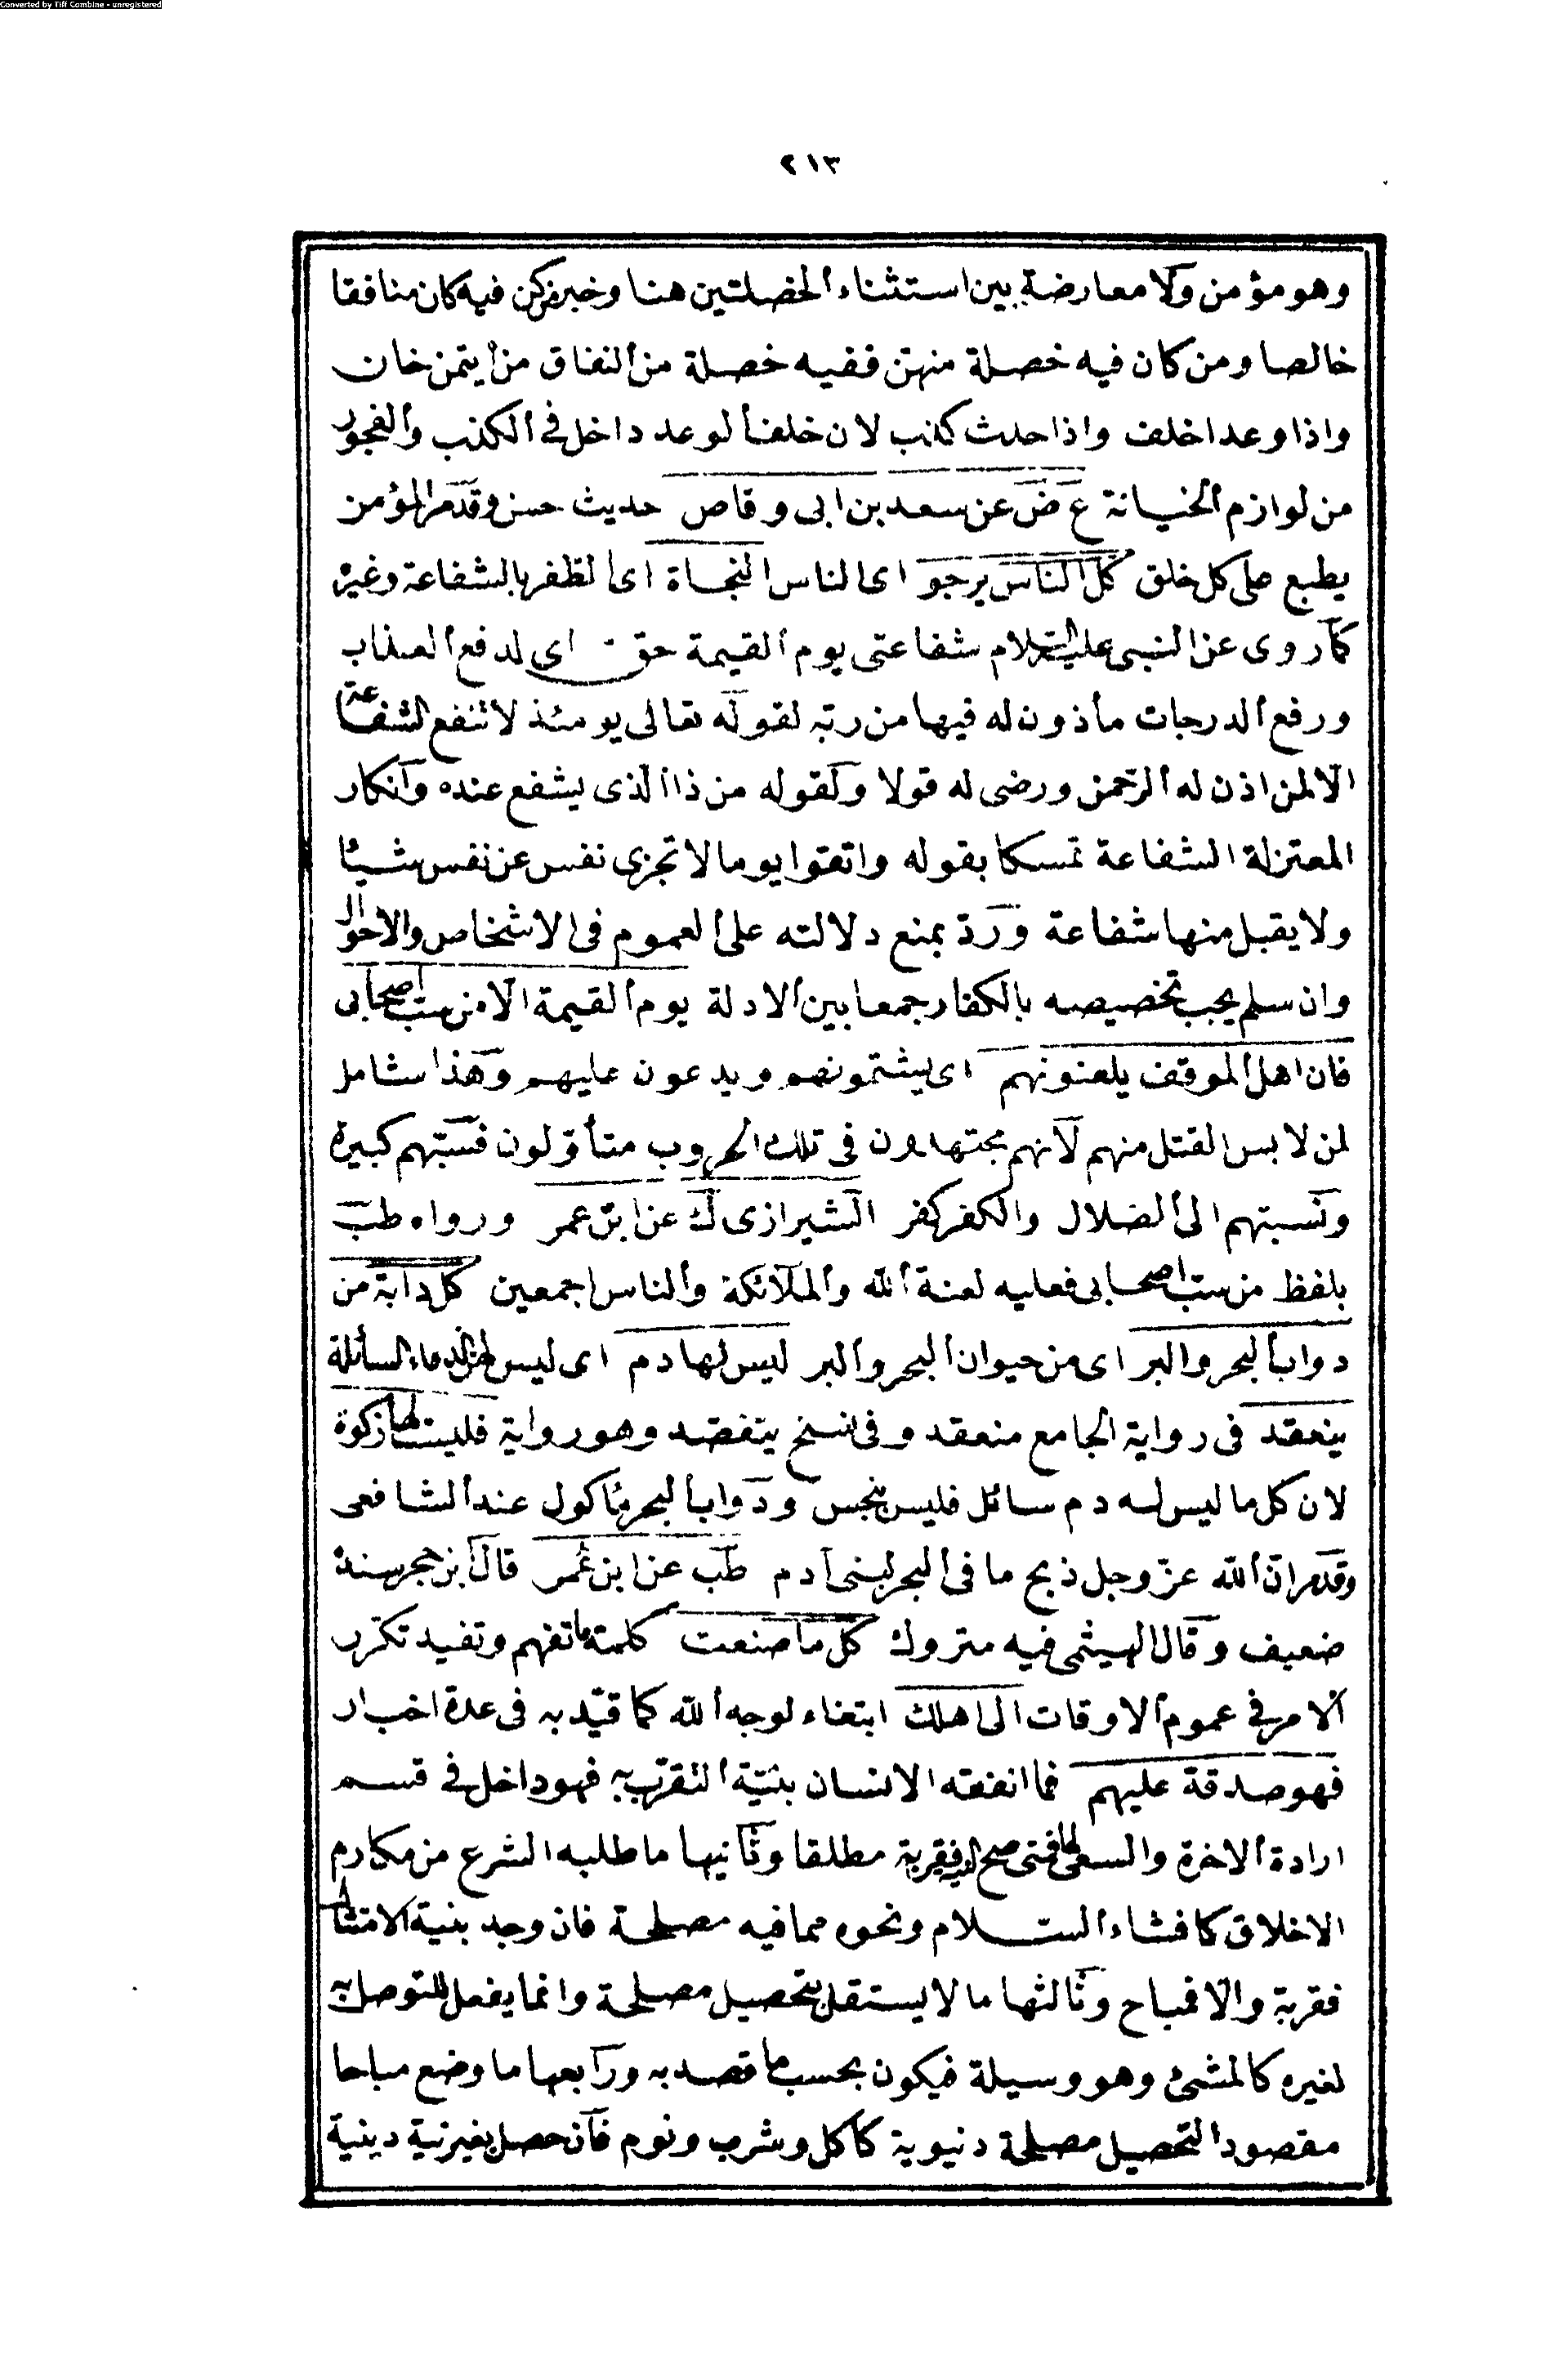 Converted by Tiff Combine - unregistered
٢١٣
وهو مؤمن ولا معارضة بين استثناء الخصلتين هنا وخبر من كن فيه كان منافقا
خالصا ومن كان فيه خصلة منهن ففيه خصلة من النفاق من ايتمن خان
واذا وعد اخلف واذا حدث كذب لان خلف الوعد داخل في الكذب والفجور
من لوازم الخيانة ع ض عن سعد بن ابى وقاص حديث حسن وقدم المؤمن
يطبع على كل خلق كل الناس يرجو اى الناس النجاة اى الظفر بالشفاعة وغيره
كما روى عن النبى عليه السلام شفاعتى يوم القيمة حق اى لدفع العذاب
ورفع الدرجات مأذون له فيها من ربه لقوله تعالى يومئذ لا تنفع الشفاعة
الا لمن اذن له الرحمن ورضى له قولا ولقوله من ذا الذى يشفع عنده وانكار
المعتزلة الشفاعة تمسكا بقوله واتقوا يوما لا تجزى نفس عن نفس شيئا
ولا يقبل منها شفاعة ورد بمنع دلالته على العموم فى الاشخاص والاحوال
وان سلم يجب تخصيصه بالكفار جمعا بين الادلة يوم القيمة الا من سب اصحابى
فان اهل الموقف يلعنونهم اى يشتمونهم ويدعون عليهم وهذا شامل
لمن لابس القتل منهم لانهم مجتهدون فى تلك الحروب متأولون فسبهم كبيرة
ونسبتهم الى الضلال والكفر كفر الشيرازى ك عن ابن عمر ورواه طب
بلفظ من سب اصحابى فعليه لعنة الله والملائكة والناس اجمعين كل دابة من
دواب البحر والبر اى من حيوان البحر والبر ليس لها دم اى ليس لهن الدماء السائلة
ينعقد فى رواية الجامع منعقد وفى نسخ يتفصد وهو رواية فليست لها زكوة
لان كل ما ليس له دم سائل فليس بنجس ودواب البحر مأكول عند الشافعى
وقدم ان الله عز وجل ذبح ما فى البحر لبنى آدم طب عن ابن عمر قال ابن حجر سنده
ضعيف وقال الهيثمى فيه متروك كل ما صنعت كلمة ما تفهم وتفيد تكرر
الامر فى عموم الاوقات الى اهلك ابتغاء لوجه الله كما قيد به فى عدة اخبار
فهو صدقة عليهم فما انفقه الانسان بنية التقرب به فهو داخل فى قسم
ارادة الاخرة والسعى لها فمتى صح النية فقربة مطلقا وثانيها ما طلبه الشرع من مكارم
الاخلاق كافشاء السلام ونحوه مما فيه مصلحة فان وجد بنية الامتثال
فقربة والا فمباح وثالثها ما لا يستقل بتحصيل مصلحة وانما يفعل للتوصل به
لغيره كالمشئ وهو وسيلة فيكون بحسب ما قصد به ورابعها ما وضع مباحا
مقصودا لتحصيل مصلحة دنيوية كاكل وشرب ونوم فان حصل بغير نية دينية